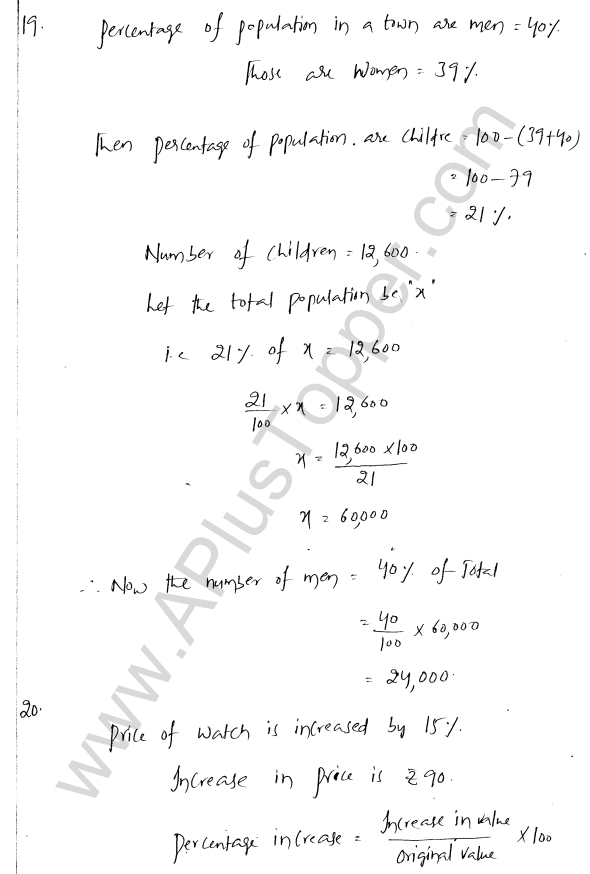 19. Percentage of population in a town are men = 40%
Those are women = 39%.
Then percentage of population. are childre = 100 - (39+40)
= 100 - 79
= 21%.
Number of children = 12,600.
Let the total population be "x"
i.e 21% of x = 12,600
21/100 × x = 12,600
x = 12,600 × 100 / 21
x = 60,000
∴ Now the number of men = 40% of Total
= 40/100 × 60,000
= 24,000.
20.
Price of watch is increased by 15%.
Increase in price is ₹90.
Percentage increase = Increase in value / Original value × 100
www.APlusTopper.com